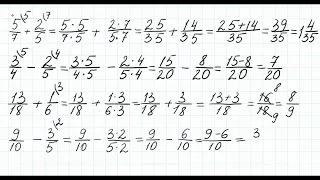 5/7\5 + 2/5\7 = 5·5/7·5 + 2·7/5·7 = 25/35 + 14/35 = 25+14/35 = 39/35 = 1 4/35
3/4\5 - 2/5\4 = 3·5/4·5 - 2·4/5·4 = 15/20 - 8/20 = 15-8/20 = 7/20
13/18 + 1/6\3 = 13/18 + 1·3/6·3 = 13/18 + 3/18 = 13+3/18 = 16/18 8/9 = 8/9
9/10 - 3/5\2 = 9/10 - 3·2/5·2 = 9/10 - 6/10 = 9-6/10 = 3